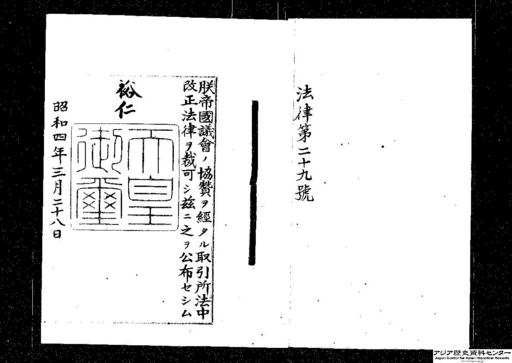 法律第二十九號
朕帝國議會ノ協贊ヲ經タル取引所法中
改正法律ヲ裁可シ茲ニ之ヲ公布セシム
裕仁
天皇
御璽
昭和四年三月二十八日
アジア歴史資料センター
Japan Center for Asian Historical Records